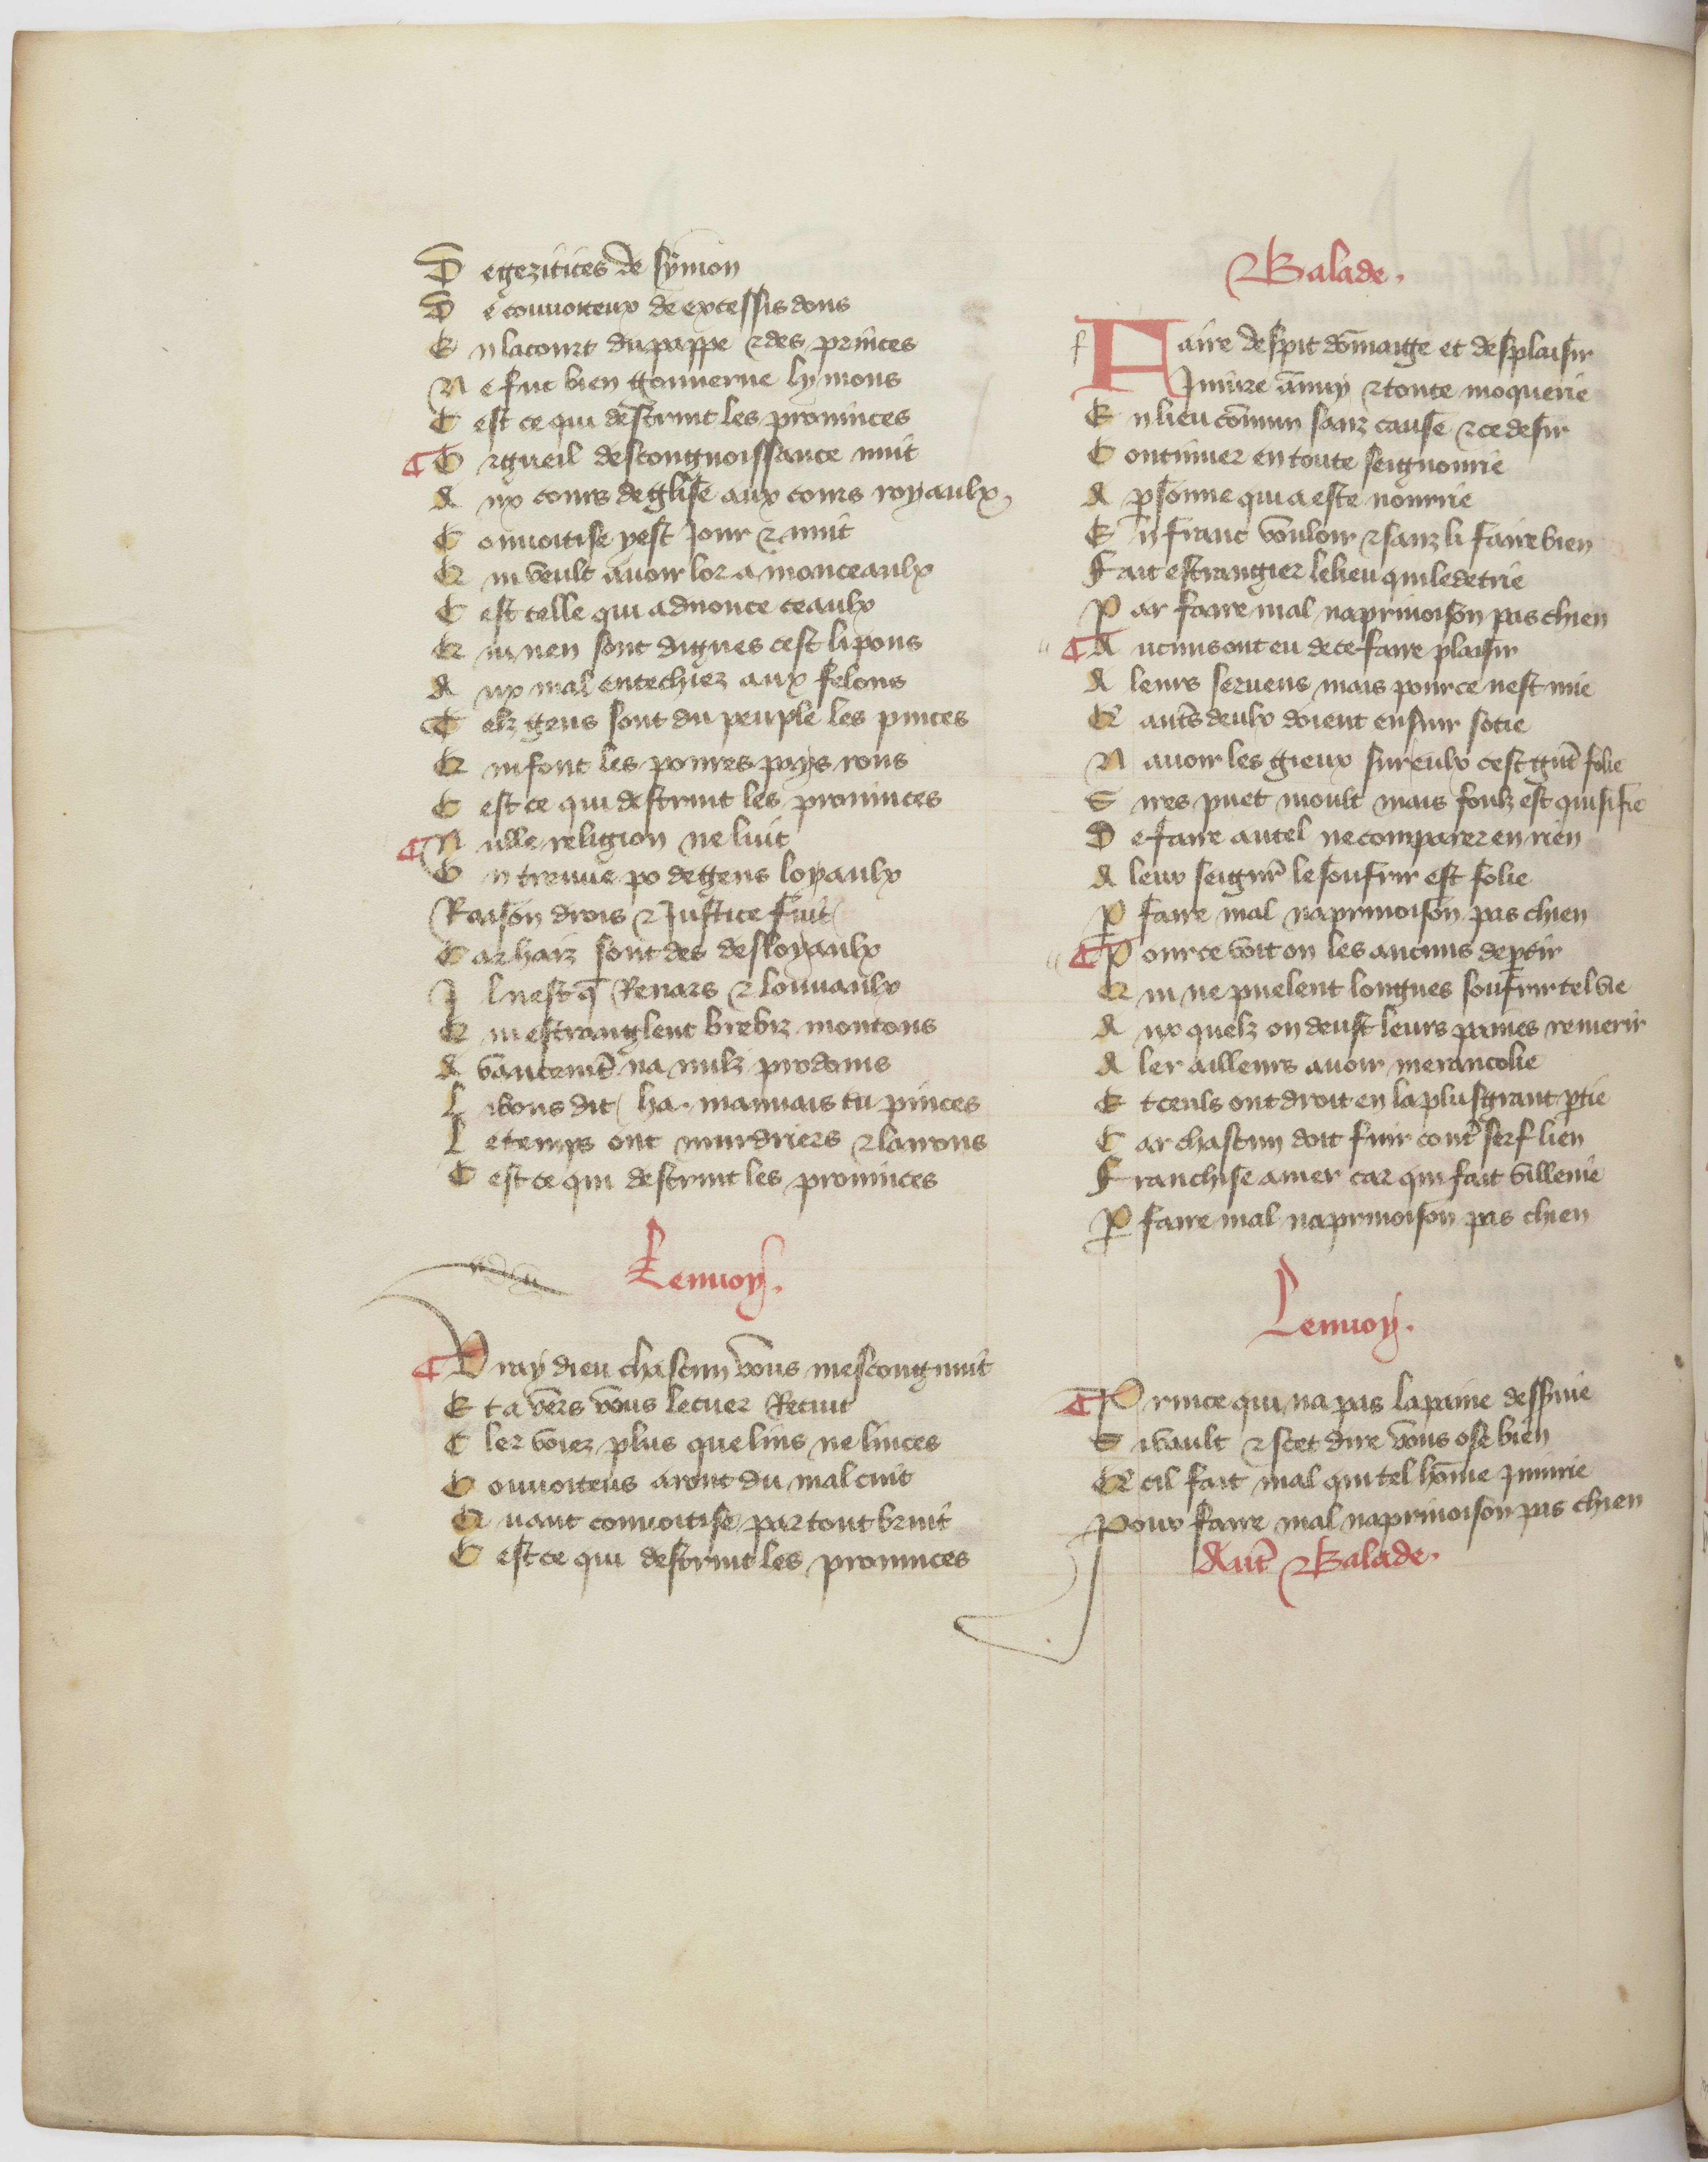 D egezitices de symon
D e couuoiteux de excessis dons
E n la court du pappe ⁊ des princes
N e fut bien gouuerne ly mons
C est ce qui destruit les prouinces
¶ O rgueil descongnoissance nuit
A ux cours deglise aux cours royaulx
C onuoitise yest Jour ⁊ nuit
Q ui veult auoir lor a monceaulx
C est celle qui adnonce ceaulx
Q ui nen sont dignes cest li pons
A ux mal entechiez aux felons
T elz gens sont du peuple les pinces
Q ui font les poures pays rons
C est ce qui destruit les prouinces
¶ N ulle religion ne luit
O n treuue po de gens loyaulx
Raison drois ⁊ Justice fuit
C ar haiz sont des desloyaulx
I l nest q̄ Renars ⁊ louuaulx
Q ui estranglent brebiz moutons
A vancemēt na nulz prodoms
L i bons dit ha. mauuais tu pinces
L e temps ont murdriers ⁊ larrons
C est ce qui destruit les prouinces
Lenuoy.
¶ V ray dieu chascun vous mescongnuit
E t a vers vous le cuer Recuit
C ler voiez plus que lins ne linces
C ouuoiteus aront du mal cuit
Q uant conuoitise par tout bruit
C est ce qui destruit les prouinces
Balade.
F aire despit dōmaige et desplaisir
Iniure āmuy ⁊ toute moquerie
E n lieu cōmun sanz cause ⁊ ce desir
C ontinuer en toute seignourie
A psonne qui a este nourrie
E n franc vouloir ⁊ sanz li faire bien
Fait estrangier le lieu qui le detrie
P ar faire mal naprinoison pas chien
¶ A ucuns ont eu de ce faire plaisir
A leurs seruens mais pour ce nest mie
Q autrs deulx doient ensuir sotie
N auoir les gieux sur eulx cest grāt folie
S ires puet moult mais foulz est qui si fie
D e faire autel ne comparer en rien
A leur seigneur le soufrir est folie
P faire mal naprinoison pas chien
¶ P our ce voit on les aucuns deptir
Q ui ne puelent longues soufrir tel vie
A ux quelz on deust leurs paines remerir
A ler ailleurs auoir merancolie
E t ceuls ont droit en la plus grant ptie
C ar chascun doit fuir contre serf lien
F ranchise amer car qui fait villenie
P faire mal naprinoison pas chien
Lenuoy.
¶ P rince qui na pas la paine desseruie
S i vault ⁊ scet dire vous ose bien
Q cil fait mal qui tel hōme iniurie
Pour faire mal naprinoison pas chien
Autr̄ Balade.